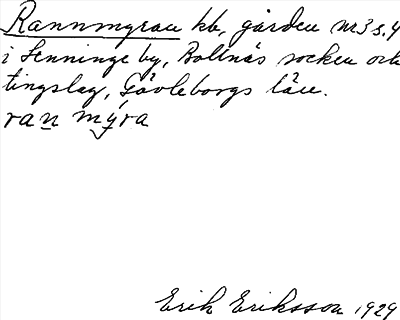 Rannmyran kb, gården nr 3 s. 4
i Senninge by, Bollnäs socken och
tingslag, Gävleborgs län.
ran mýra
Erik Eriksson 1929